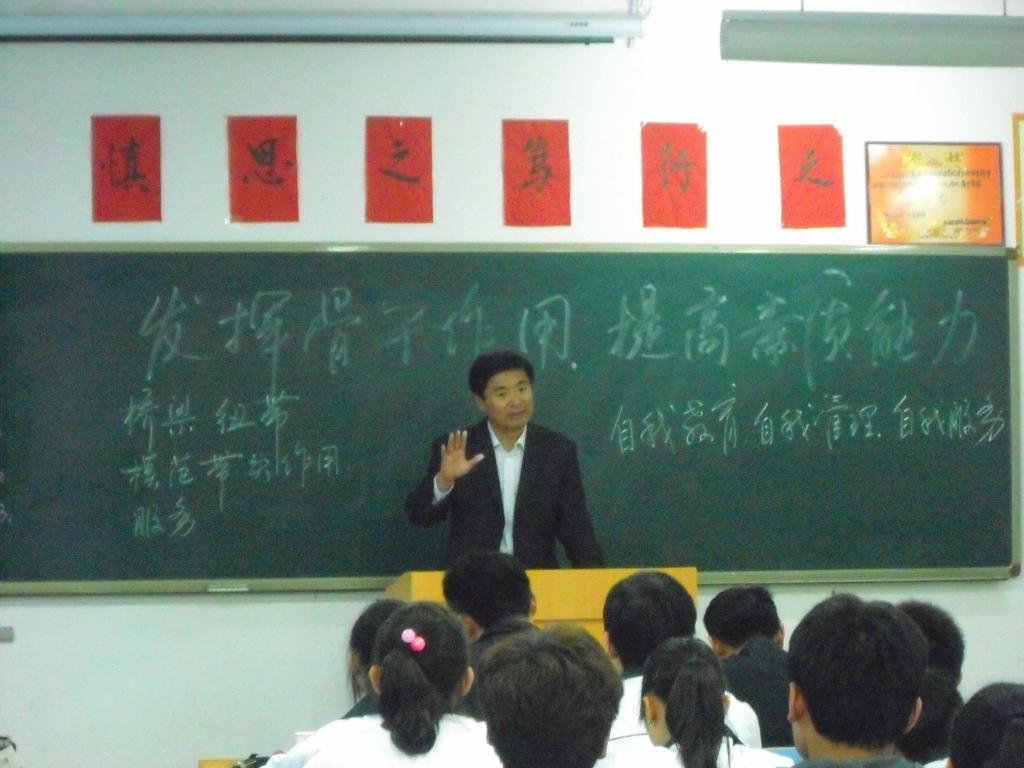 慎思之笃行之
奖状
发挥骨干作用 提高素质能力
桥梁纽带
模范带头作用
服务
自我教育 自我管理 自我服务